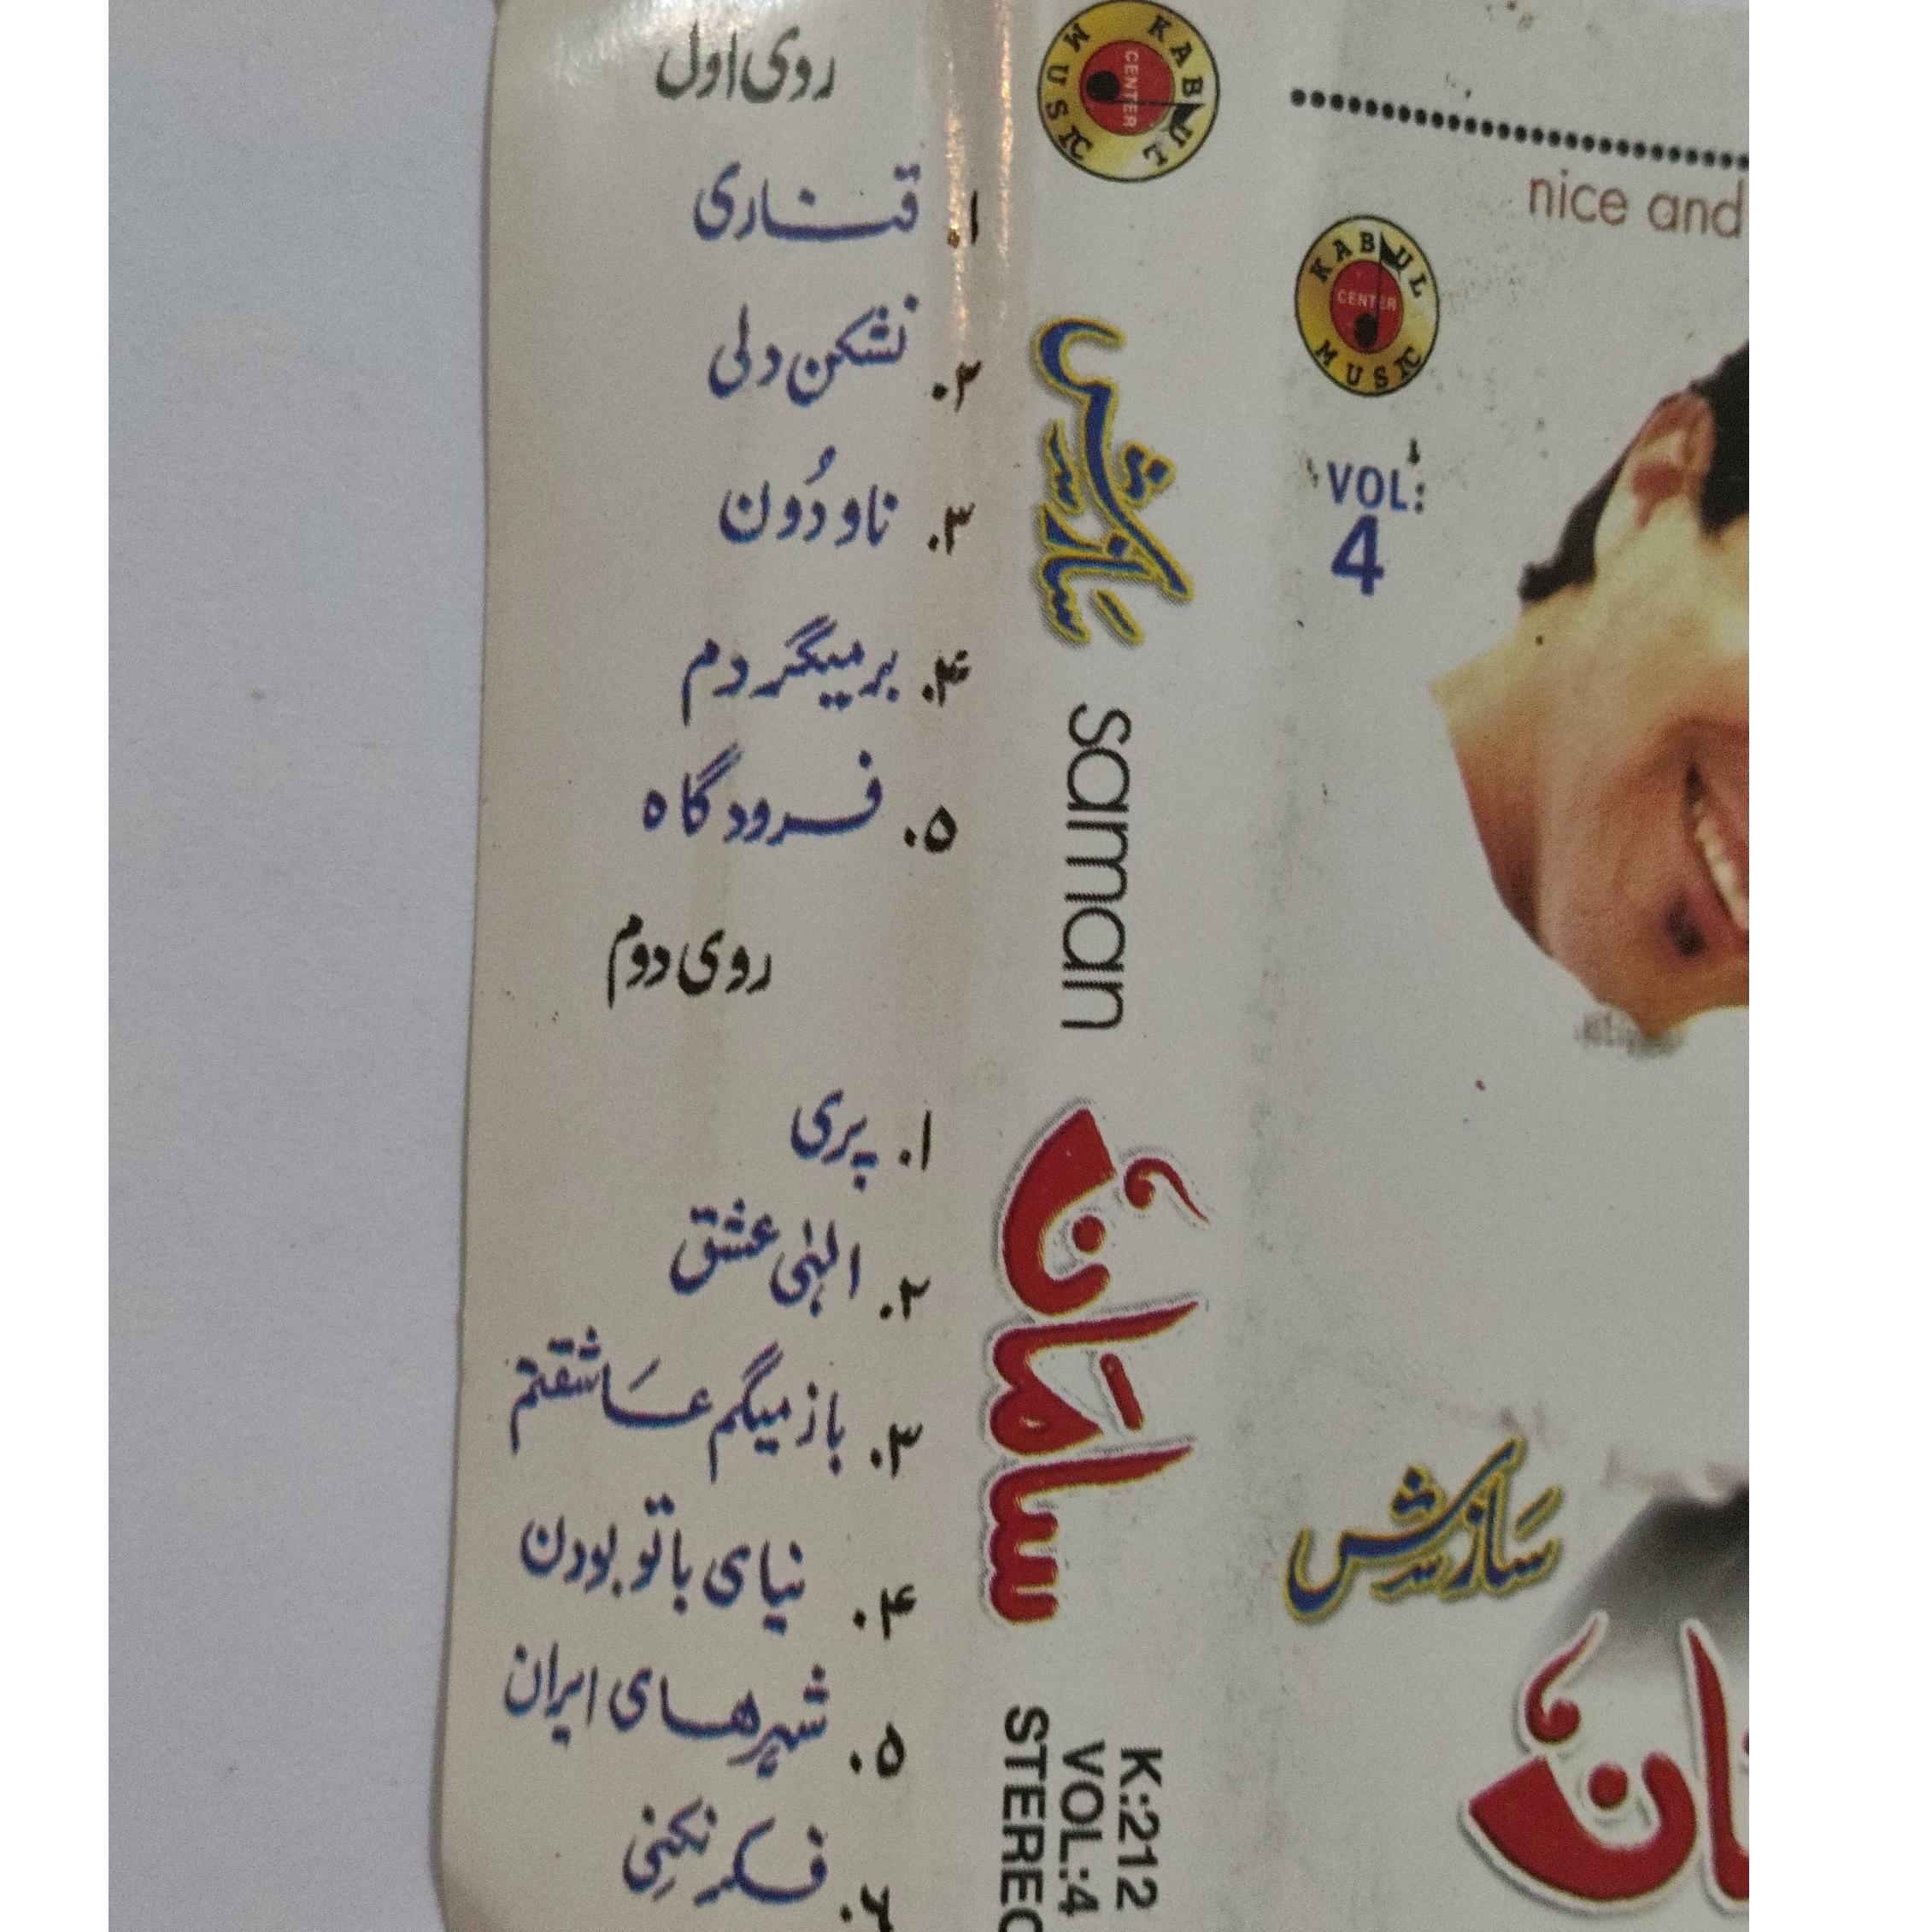 روی اول
۱. قناری
۲. نشکن دلی
۳. ناودُون
۴. برمیگردم
۵. فرودگاه
روی دوم
۱. پری
۲. الهٰی عشق
۳. باز میگم عاشقتم
۴. نیای با تو بودن
۵. شهرهای ایران
۶. فکر نکنِی
KABUL
CENTER
MUSIC
سازش
saman
سامان
K:212
VOL:4
STEREO
nice and
KABUL
CENTER
MUSIC
VOL:
4
سازش